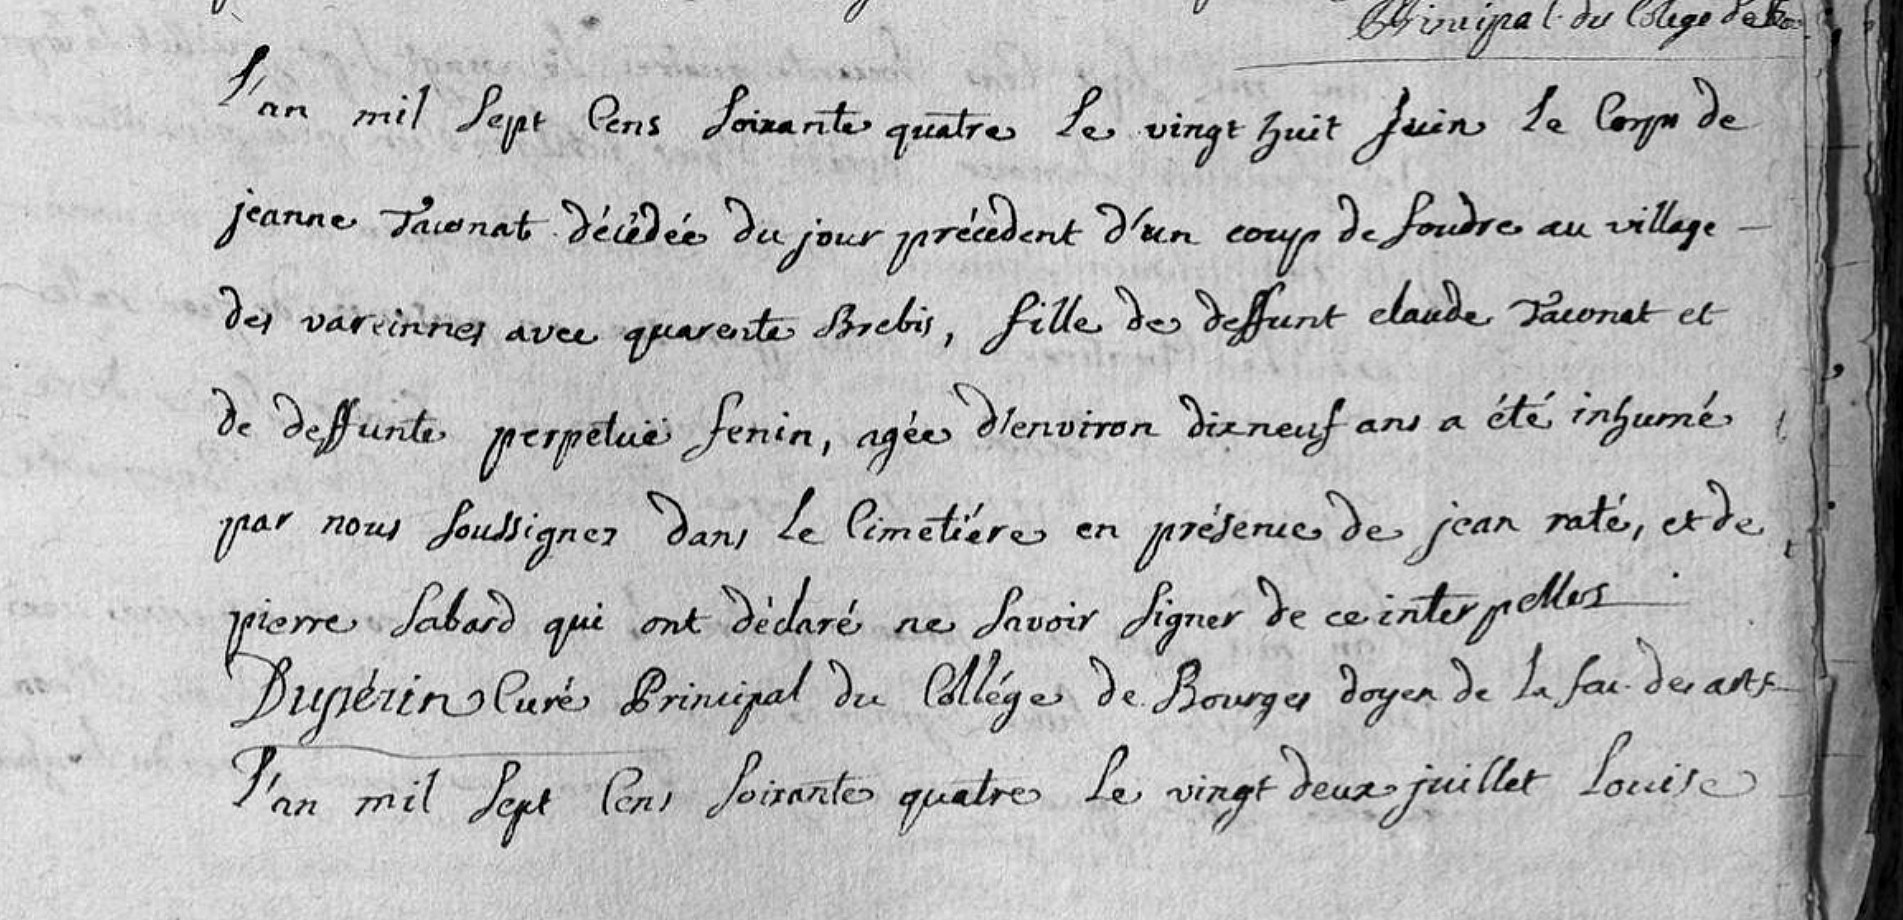 Principal du Colege de
L'an mil sept Cens soixante quatre Le vingt huit Juin Le Corps de
jeanne Taconat décédée du jour précédent d'un coup de foudre au village
des vareinnes avec quarente Brebis, fille de deffunt claude Taconat et
de deffunte perpetuë fenin, agée d'environ dixneuf ans a été inhumé
par nous soussignez dans Le Cimetiére en présence de jean raté, et de
pierre Sabard qui ont déclaré ne savoir signer de ce interpelles
Dupérin Curé Principal du Collége de Bourges doyen de La fac. des arts
L'an mil sept Cens soixante quatre Le vingt deux juillet Louise